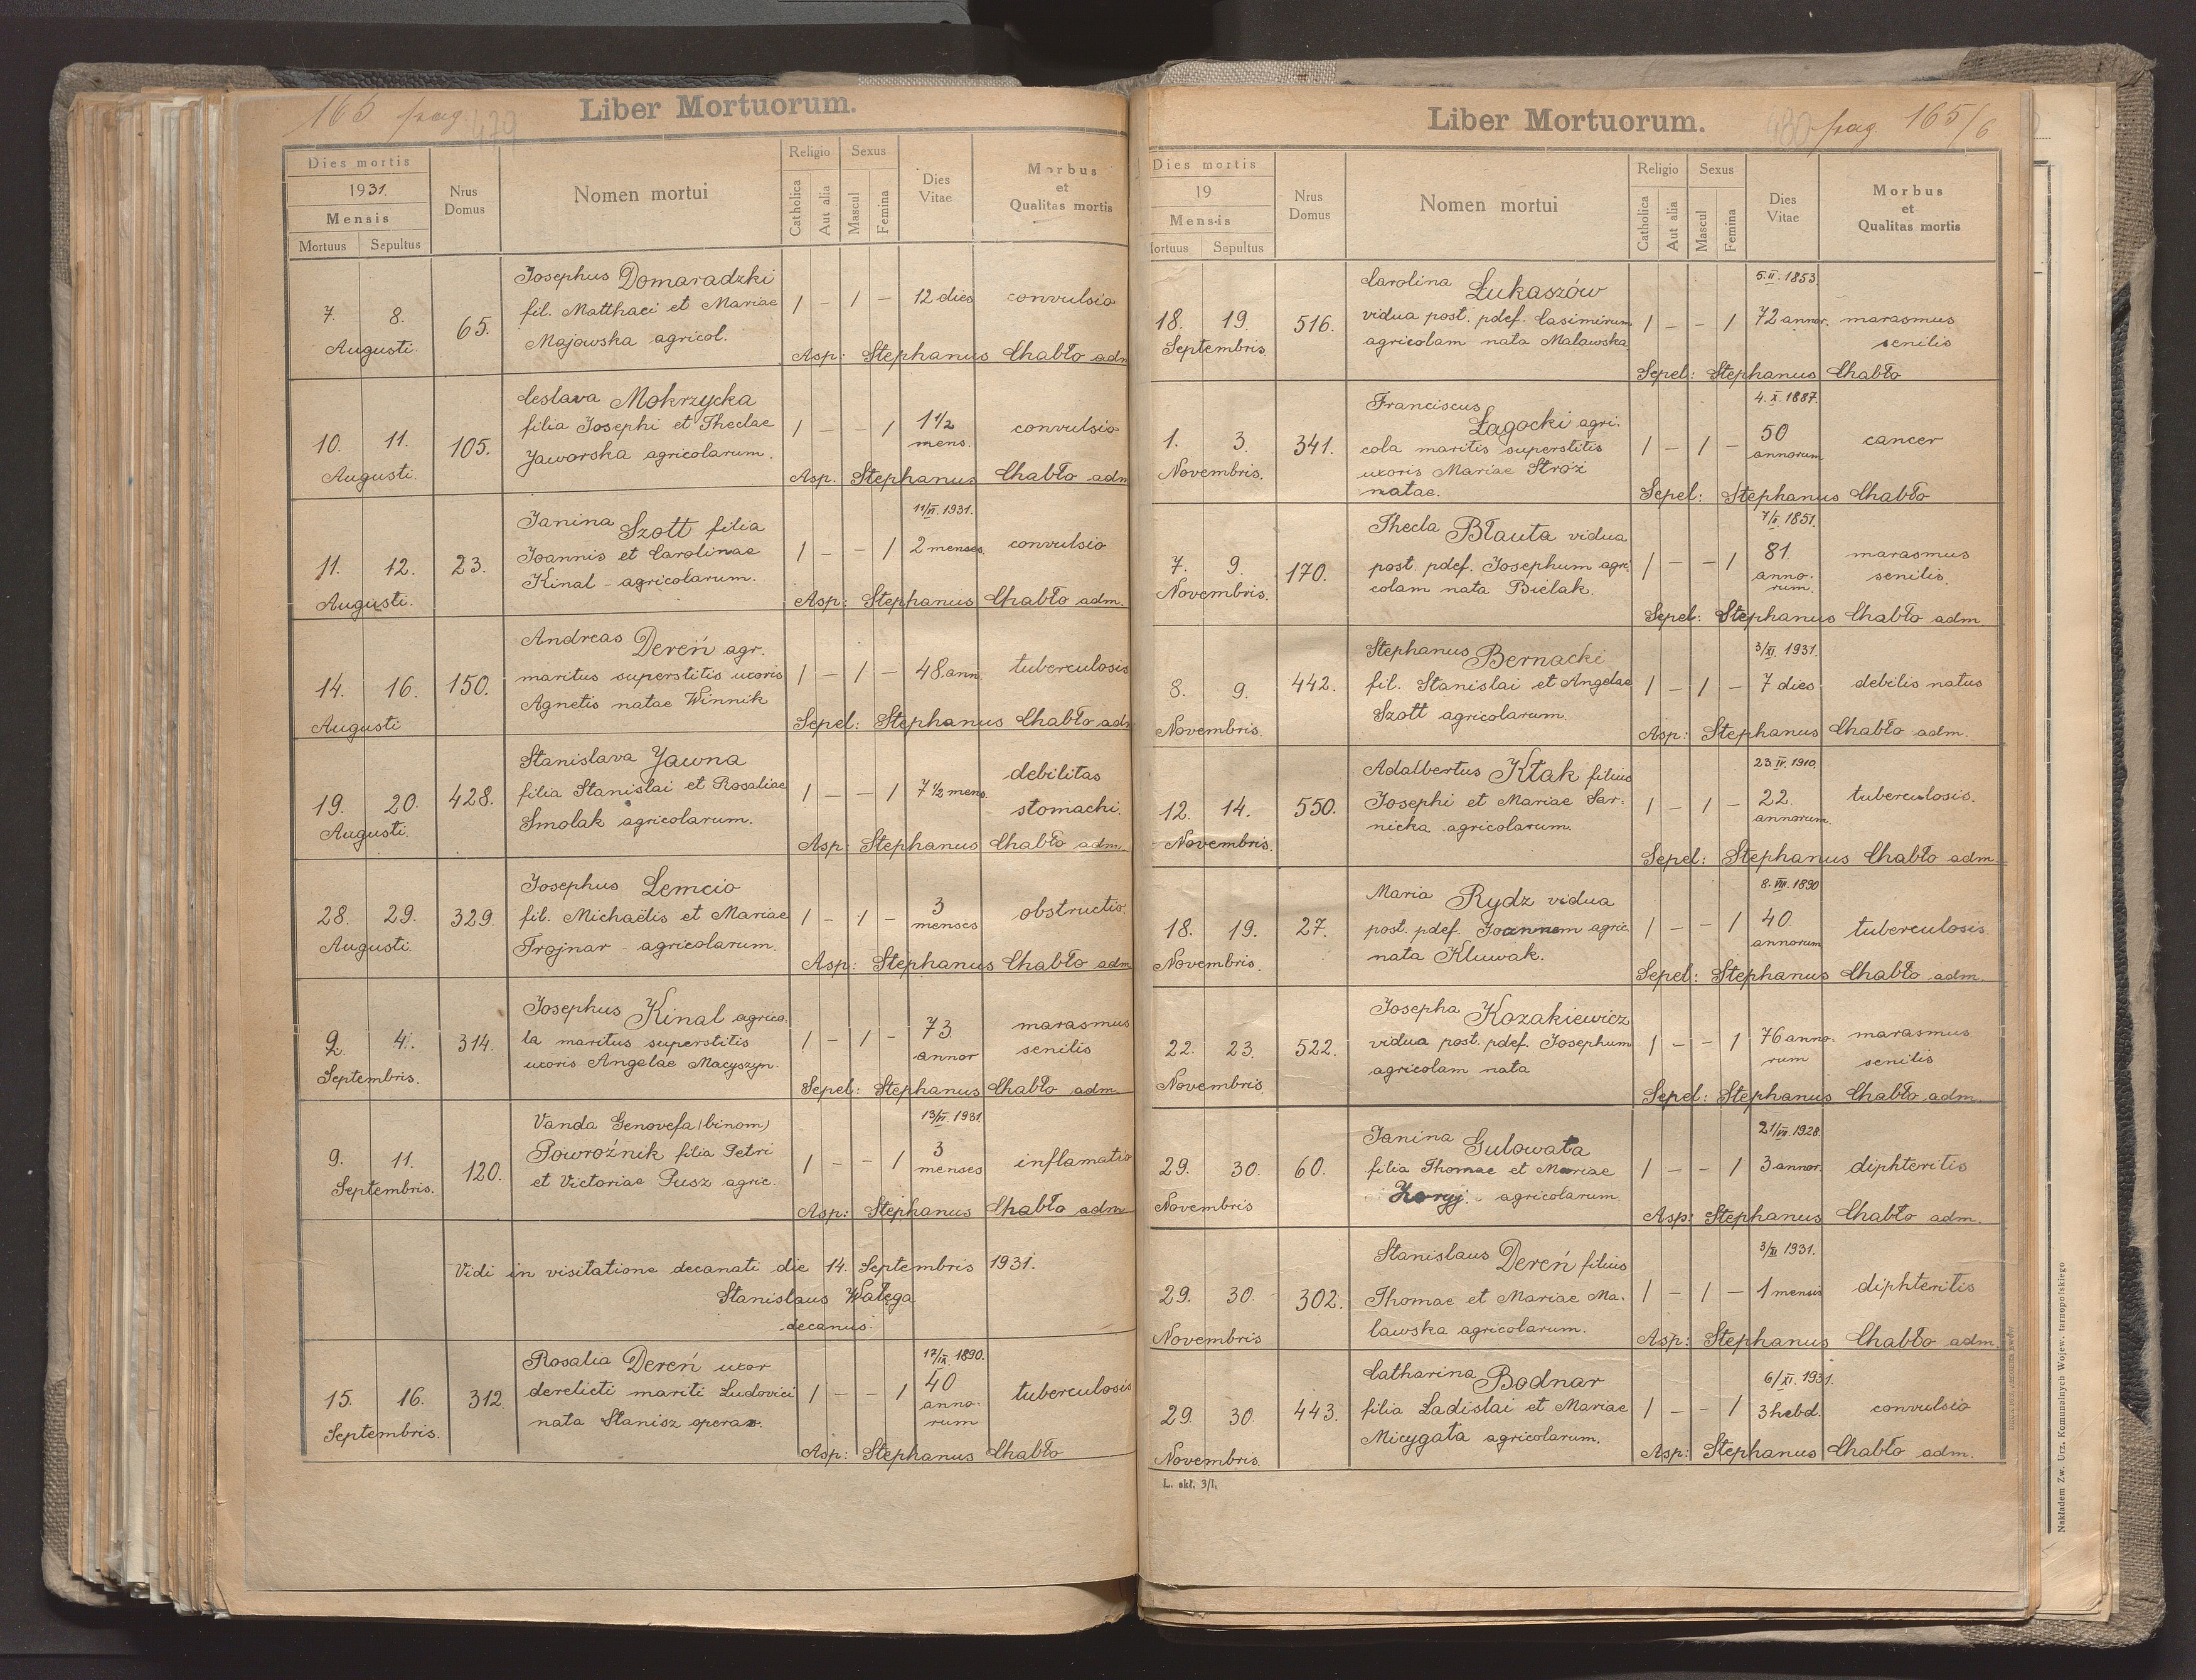 165 pag. 479
Liber Mortuorum.
Dies mortis
1931.
Mensis
Mortuus Sepultus
Nrus Domus
Nomen mortui
Religio
Catholica
Aut alia
Sexus
Mascul
Femina
Dies Vitae
Morbus
et
Qualitas mortis
Josephus Domaradzki
7. 8. 65. fil. Matthaei et Mariae 1 – 1 – 12 dies convulsio
Augusti. Majowska agricol.
Asp: Stephanus Chabło adm
Ceslava Mokrzycka
10. 11. 105. filia Josephi et Theclae 1 – – 1 1 1/2 mens. convulsio
Augusti. Jaworska agricolarum.
Asp. Stephanus Chabło adm
Janina Szott filia 11/VI. 1931.
11. 12. 23. Joannis et Carolinae 1 – – 1 2 menses. convulsio
Augusti. Kinal – agricolarum.
Asp: Stephanus Chabło adm.
Andreas Dereń agr.
14. 16. 150. maritus superstitis uxoris 1 – 1 – 48 ann. tuberculosis
Augusti Agnetis natae Winnik
Sepel: Stephanus Chabło adm
Stanislava Jawna
19. 20. 428. filia Stanislai et Rosaliae 1 – – 1 7 1/2 mens. debilitas stomachi.
Augusti. Smolak agricolarum.
Asp: Stephanus Chabło adm.
Josephus Lemcio
28. 29. 329. fil. Michaëlis et Mariae 1 – 1 – 3 menses obstructio.
Augusti. Trojnar – agricolarum.
Asp: Stephanus Chabło adm
Josephus Kinal agrico.
2. 4. 314. la maritus superstitis 1 – 1 – 73 annor marasmus senilis
Septembris. uxoris Angelae Macyszyn.
Sepel: Stephanus Chabło adm.
Vanda Genovefa (binom) 13/VI. 1931.
9. 11. 120. Powroźnik filia Petri 1 – – 1 3 menses inflamatio
Septembris. et Victoriae Pusz agric.
Asp: Stephanus Chabło adm
Vidi in visitatione decanati die 14. Septembris 1931.
Stanislaus Wałęga
decanus.
Rosalia Dereń uxor 17/IX. 1890.
15. 16. 312. derelicti mariti Ludovici 1 – – 1 40 anno. rum tuberculosis
Septembris. nata Stanisz
Asp: Stephanus Chabło
Liber Mortuorum.
480 pag. 165/6
Dies mortis
19
Mensis
Mortuus Sepultus
Nrus Domus
Nomen mortui
Religio
Catholica
Aut alia
Sexus
Mascul
Femina
Dies Vitae
Morbus
et
Qualitas mortis
Carolina Łukaszów 5. II. 1853.
18. 19. 516. vidua post. pdef. Casimirum 1 – – 1 72 annor. marasmus senilis
Septembris. agricolam nata Malawska
Sepel: Stephanus Chabło
Franciscus Łagocki agri. 4. X. 1887.
1. 3. 341. cola maritis superstitis 1 – 1 – 50 annorum cancer
Novembris. uxoris Mariae Stróż
natae.
Sepel: Stephanus Chabło
Thecla Błauta vidua 1851.
7. 9. 170. post. pdef. Josephum agri. 1 – – 1 81 anno. rum. marasmus senilis.
Novembris. colam nata Bielak.
Sepel: Stephanus Chabło adm.
Stephanus Bernacki 3/XI. 1931.
8. 9. 442. fil. Stanislai et Angelae 1 – 1 – 7 dies debilis natus
Novembris. Szott agricolarum.
Asp: Stephanus Chabło adm.
Adalbertus Ktak filius 23 IV. 1910.
12. 14. 550. Josephi et Mariae Sar. 1 – 1 – 22. annorum. tuberculosis.
Novembris. nicka agricolarum.
Sepel: Stephanus Chabło adm
Maria Rydz vidua 8. VIII. 1890
18. 19. 27. post. pdef. Joannem agric. 1 – – 1 40 annorum tuberculosis
Novembris. nata Kluwak.
Sepel: Stephanus Chabło adm.
Josepha Kozakiewicz
22. 23. 522. vidua post. pdef. Josephum 1 – – 1 76 anno. rum marasmus senilis
Novembris. agricolam nata
Sepel: Stephanus Chabło adm.
Janina Gulowata 21/VII. 1928.
29. 30. 60. filia Thomae et Mariae 1 – – 1 3 annor. diphteritis
Novembris agricolarum.
Asp: Stephanus Chabło adm.
Stanislaus Dereń filius 3/XI 1931.
29. 30. 302. Thomae et Mariae Ma. 1 – 1 – 1 mensis diphteritis
Novembris lawska agricolarum.
Asp: Stephanus Chabło adm.
Catharina Bodnar 6/XI. 1931.
29. 30. 443. filia Ladislai et Mariae 1 – – 1 3 hebd. convulsio
Novembris. Micygata agricolarum.
Asp: Stephanus Chabło adm.
L. skł. 3/1.
Nakładem Zw. Urz. Komunalnych Wojew. tarnopolskiego